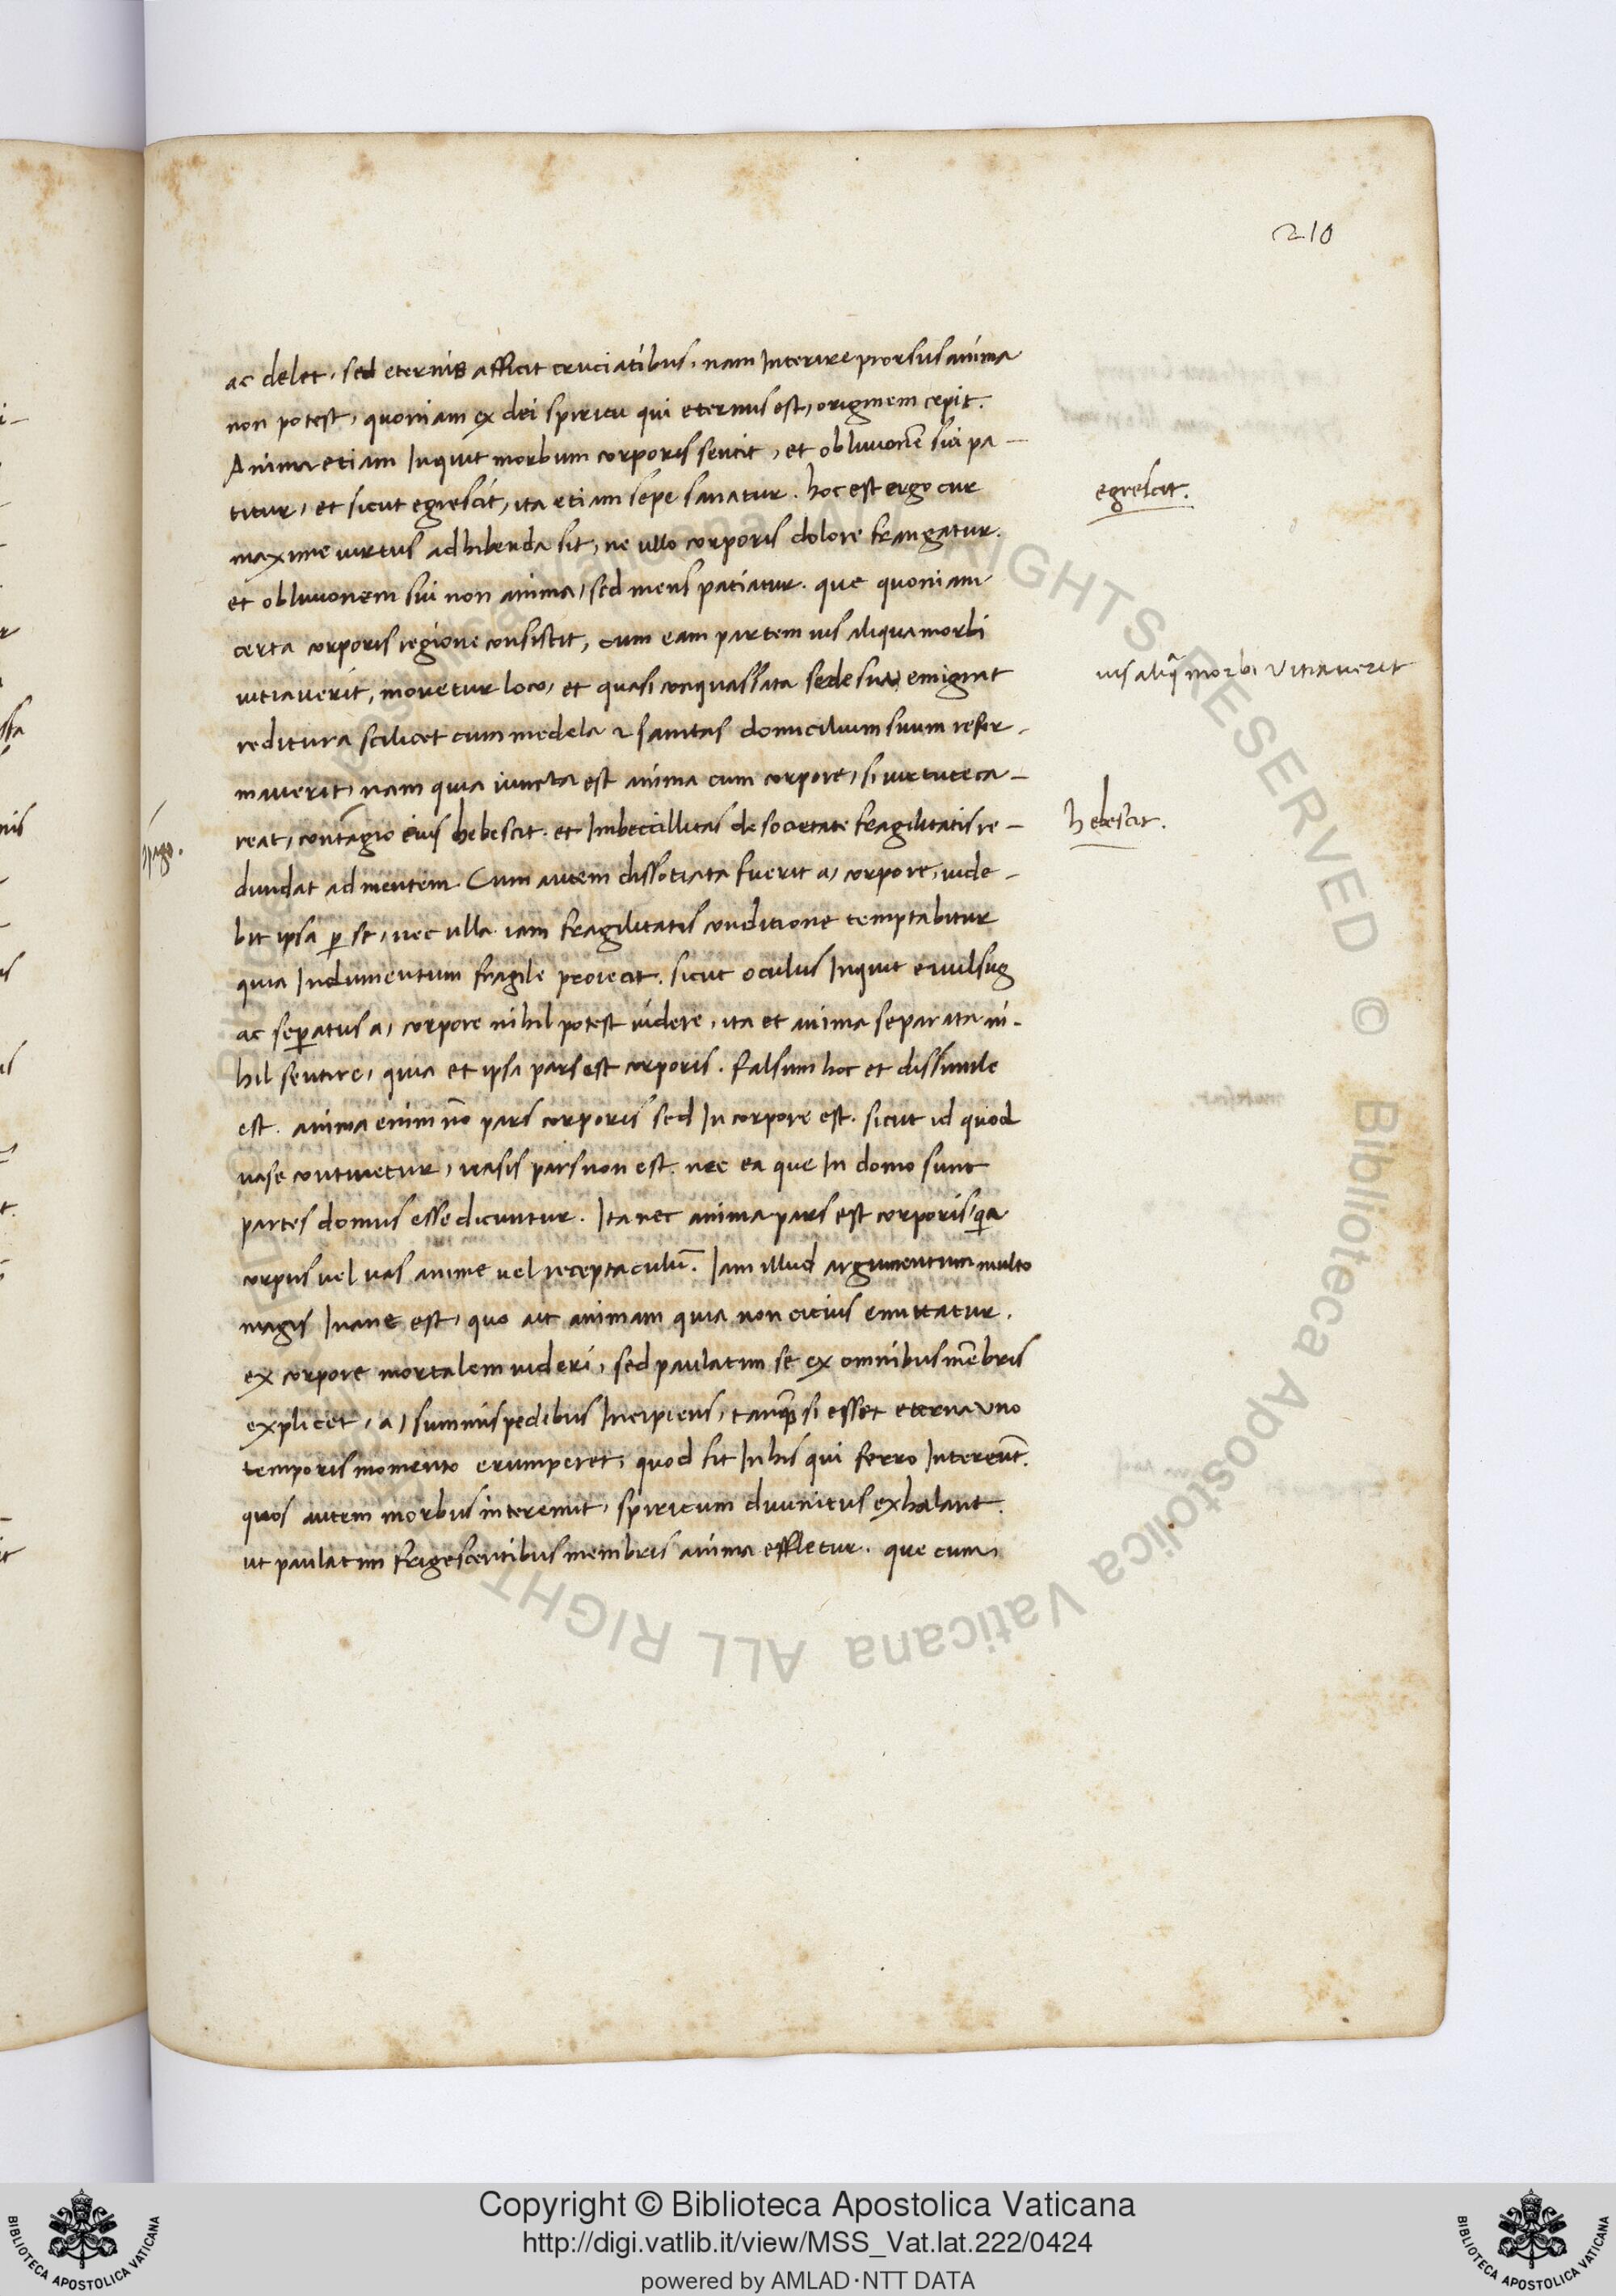 210
ac delet, sed eternis afficit cruciatibus. nam Interire prorsus anima
non potest, quoniam ex dei spiritu qui eternus est, originem cepit.
Anima etiam Inquit morbum corporis sentit, et obliuionē sui pa-
titur, et sicut egrescit, ita etiam sepe sanatur. hoc est ergo cur
maxime uirtus adhibenda sit, ne ullo corporis dolore frangatur.
et obliuionem sui non anima, sed mens patiatur. que quoniam
certa corporis regione consistit, cum eam partem uis aliqua morbi
uitiauerit, mouetur loco, et quasi conquassata sede sua emigrat
reditura scilicet cum medela & sanitas domicilium suum refir-
mauerit, nam quia iuncta est anima cum corpore, si uirtute ca-
reat, contagio eius hebescit. et Imbecillitas de societate fragilitatis re-
dundat ad mentem. Cum autem dissotiata fuerit a, corpore, uide-
bit ipsa p̱ se, nec ulla iam fragilitatis conditione temptabitur
quia Indumentum fragile proiecit. sicut oculus Inquit euulsus
ac sep̱atus a, corpore nihil potest uidere, ita et anima separata ni-
hil sentire, quia et ipsa pars est corporis. falsum hoc et dissimile
est. anima enim nō pars corporis sed In corpore est. sicut id quod
uase continetur, uasis pars non est. nec ea que In domo sunt
partes domus esse dicuntur. Ita nec anima pars est corporis, qa
corpus uel uas anime uel receptaculū. Iam illud argumentum multo
magis Inane est, quo ait animam quia non citius emittatur.
ex corpore mortalem uideri, sed paulatim se ex omnibus mēbris
explicet, a, summis pedibus Incipiens, tanq̄ si esset eterna uno
temporis momento erumperet, quod fit In his qui ferro Intereūt.
quos autem morbus interemit, spiritum diuinitus exhalant.
ut paulatim frigescentibus membris anima effletur. que cum
egrescit.
uis aliqa morbi Vitiauerit
hebescit.
Copyright © Biblioteca Apostolica Vaticana
http://digi.vatlib.it/view/MSS_Vat.lat.222/0424
powered by AMLAD·NTT DATA
BIBLIOTECA APOSTOLICA VATICANA
BIBLIOTECA APOSTOLICA VATICANA
© Biblioteca Apostolica Vaticana ALL RIGHTS RESERVED